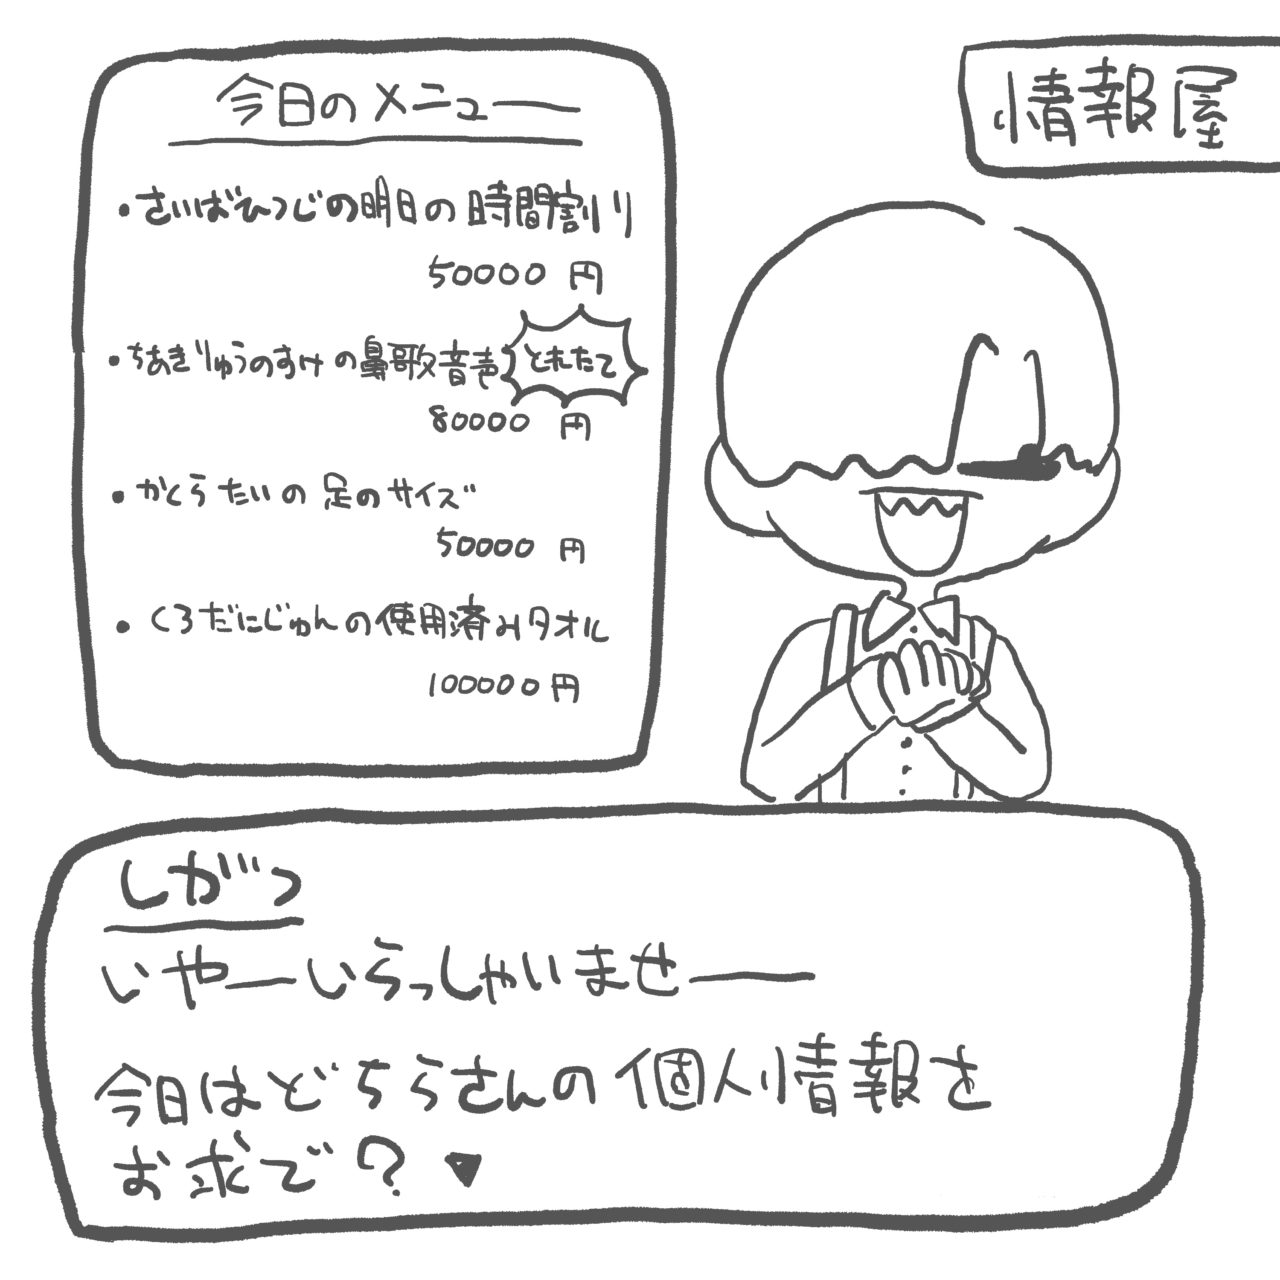 情報屋
今日のメニュー
・さいばひつじの明日の時間割り
50000 円
・ちあきりゅうのすけの鼻歌音声 とれたて
80000 円
・かくらたいの足のサイズ
50000 円
・くろだにじゅんの使用済みタオル
100000円
しがつ
いやーいらっしゃいませー
今日はどちらさんの個人情報を
お求で?▼